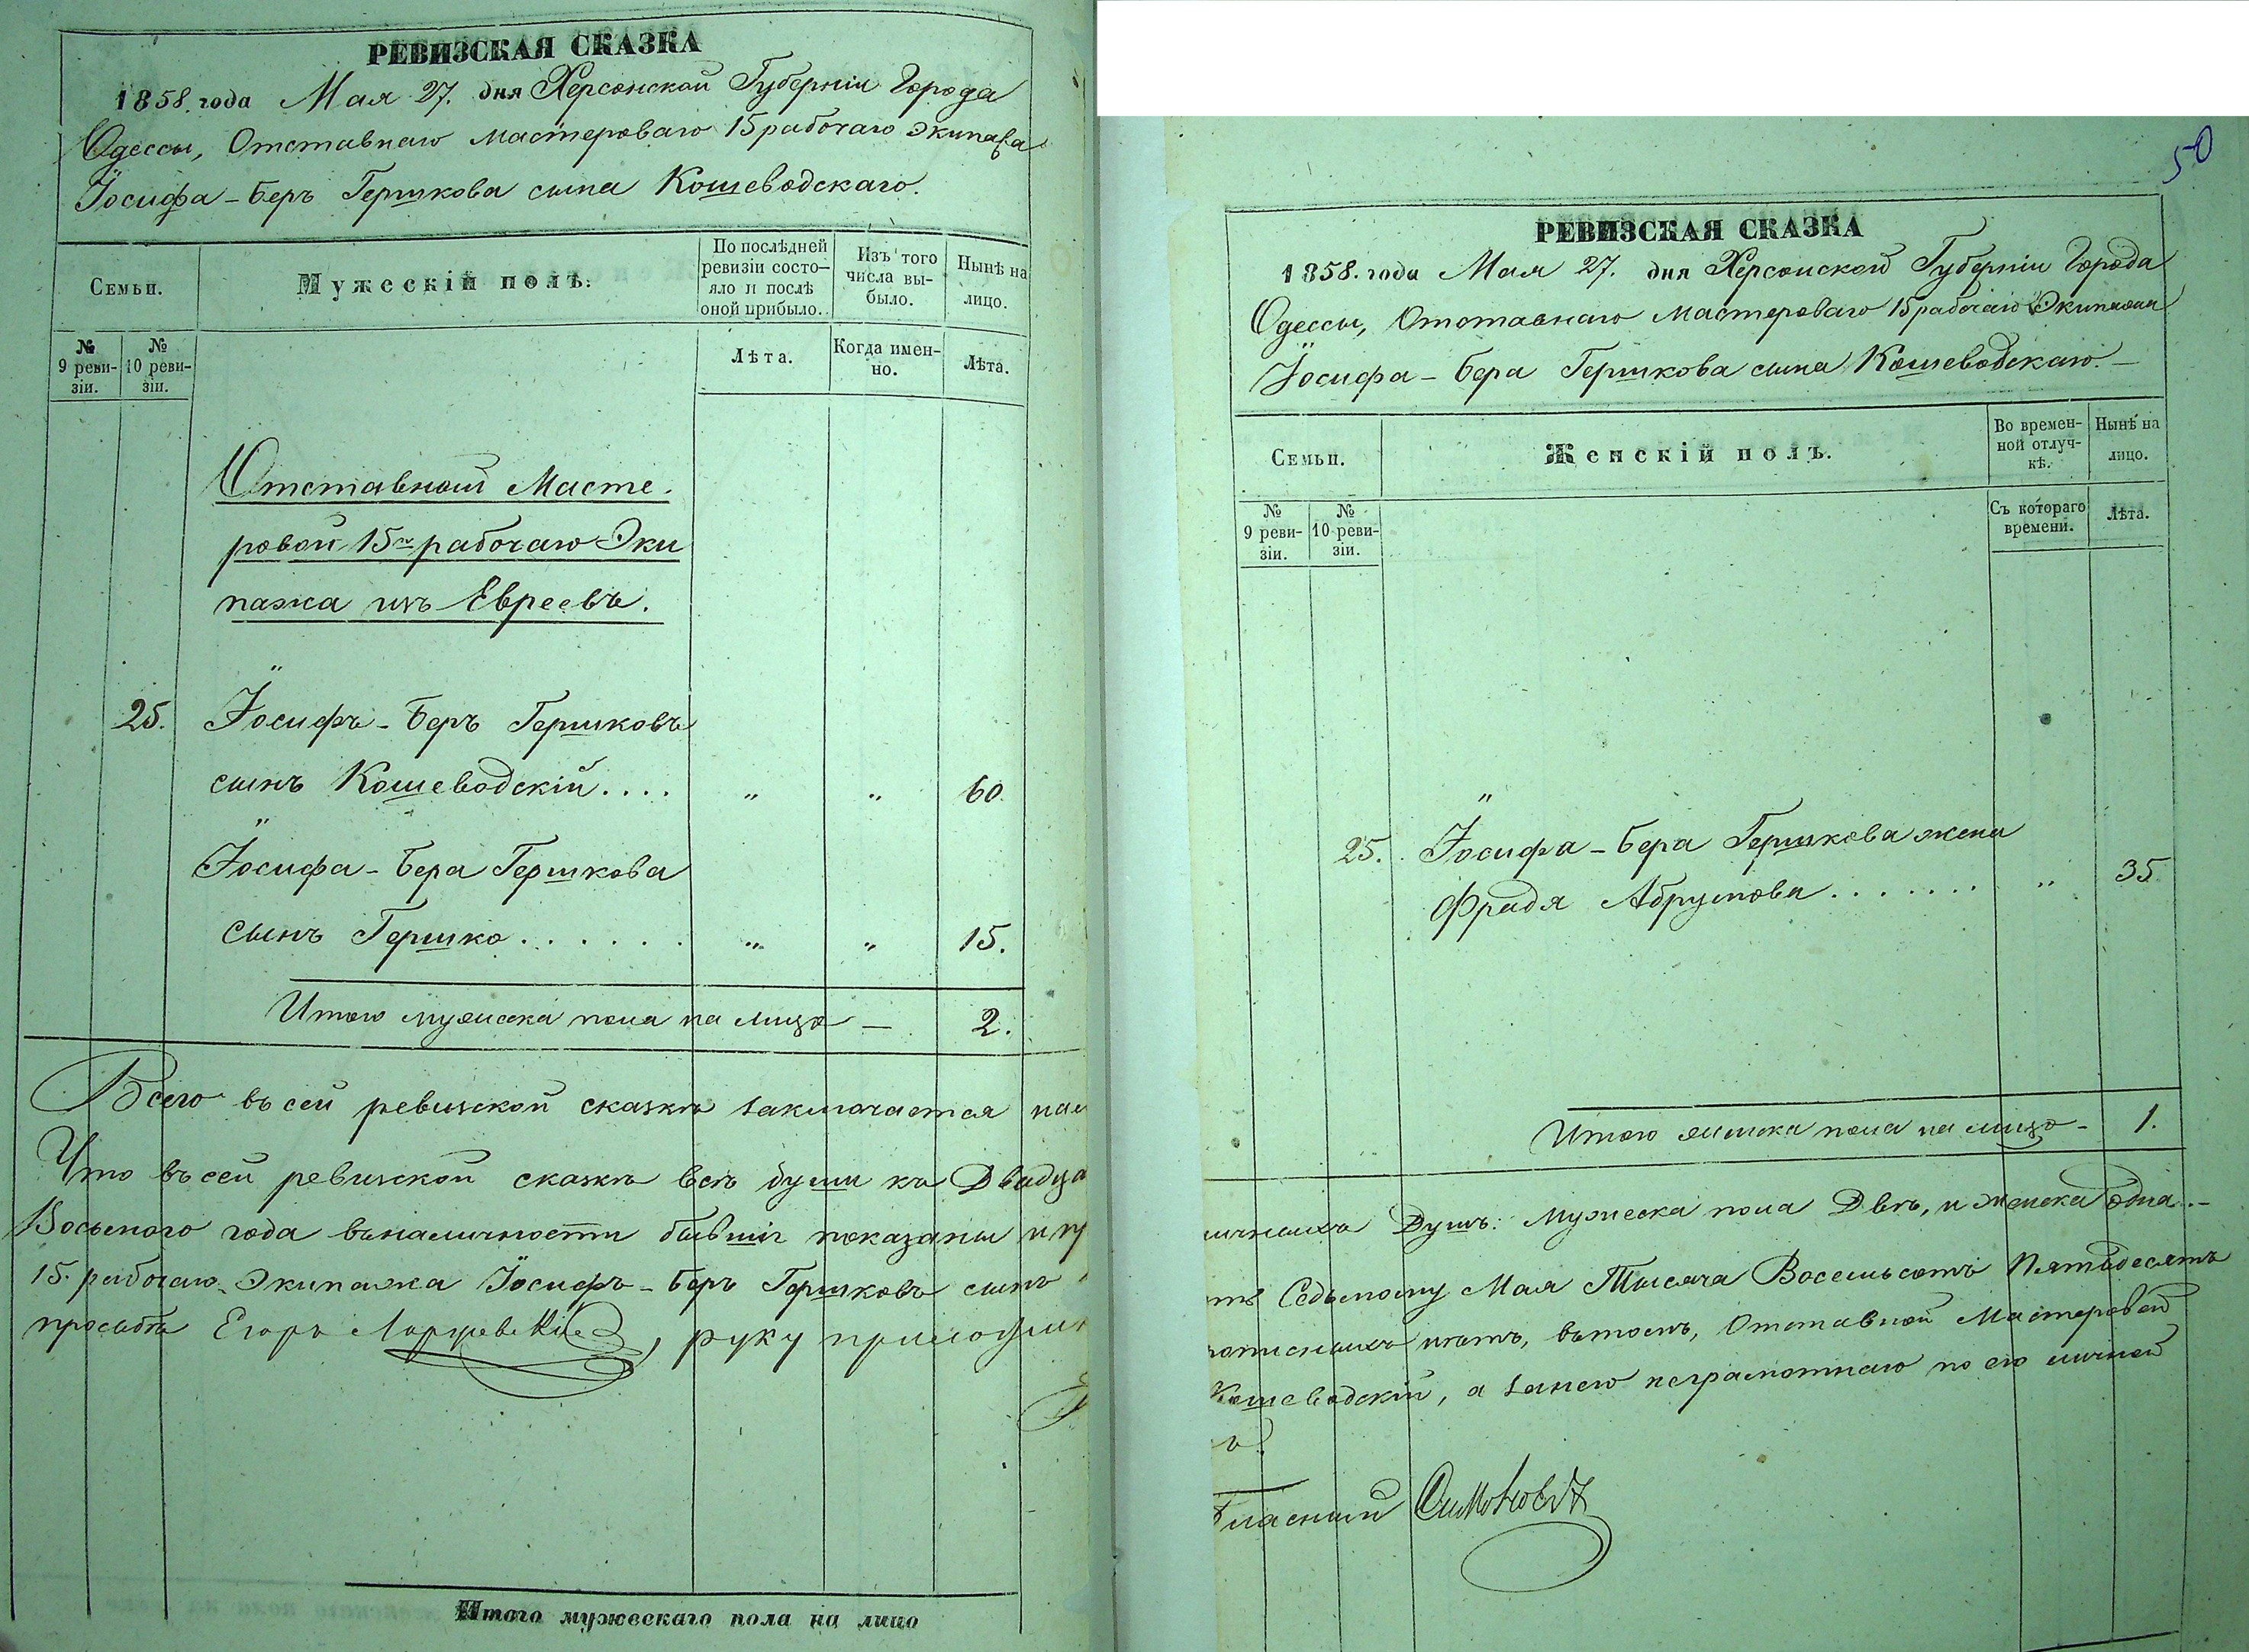 РЕВИЗСКАЯ СКАЗКА
1858. года Мая 27. дня Херсонской Губерніи Города
Одессы, Отставнаго мастероваго 15 рабочаго экипажа
Іосифа-Беръ Гершкова сына Кошеводскаго.
Семьи.
Мужескій полъ.
По послѣдней ревизіи состо-
яло и послѣ оной прибыло.
Изъ того числа вы-
было.
Нынѣ на лицо.
№ 9 реви-
зіи.
№ 10 реви-
зіи.
Лѣта.
Когда имен-
но.
Лѣта.
Отставной Масте-
ровой 15го рабочаго Эки
пажа изъ Евреевъ.
25. Іосифъ-Беръ Гершковъ
сынъ Кошеводскій.... „ „ 60
Іосифа-Бера Гершкова
сынъ Гершко...... „ „ 15.
Итого мужеска пола на лицо — 2.
Всего въ сей ревизской сказкѣ заключается на
Что въ сей ревизской сказкѣ всѣ души къ Двадца
Восьмого года въ наличности бывшіе показаны и пр
15. рабочаго Экипажа Іосифъ-Беръ Гершковъ сынъ
просьбѣ Егоръ , руку приложи
Итого мужескаго пола на лицо
50
РЕВИЗСКАЯ СКАЗКА
1858. года Мая 27. дня Херсонской Губерніи Города
Одессы, Отставнаго Мастероваго 15 рабочаго Экипажа
Іосифа-Бера Гершкова сына Кошеводскаго.—
Семьи.
Женскій полъ.
Во времен-
ной отлуч-
кѣ.
Нынѣ на лицо.
№ 9 реви-
зіи.
№ 10 реви-
зіи.
Съ котораго времени.
Лѣта.
25. Іосифа-Бера Гершкова жена
Фрадя Абрумова....... „ 35
Итого женска пола на лицо - 1.
личныхъ Душъ: Мужеска пола Двѣ, и женска одна.-
ть Седьмому Мая Тысяча Восемьсотъ Пятьдесятъ
рописныхъ нѣтъ, вътомъ, Отставной Мастеровой
Кошеводскій, а занего неграмотнаго по его личной
ъ.
Гласный Симоновъ